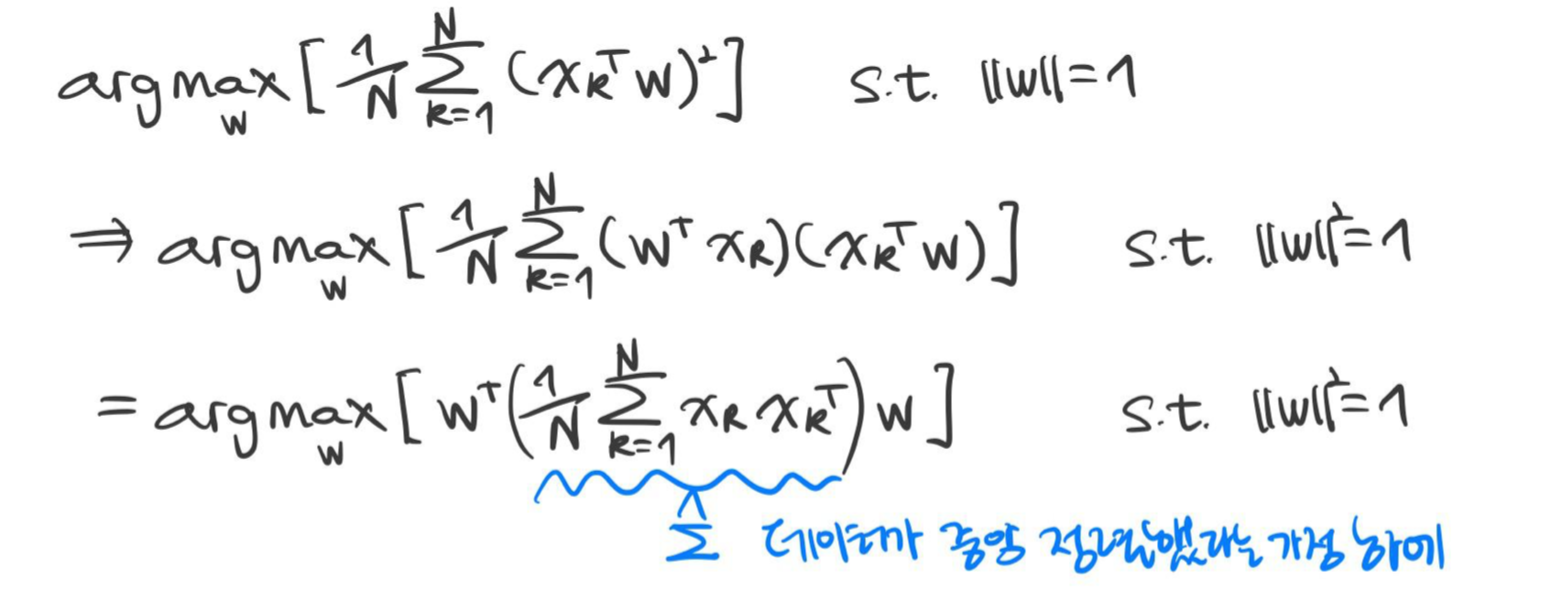 argmax_w [ 1/N Σ_{k=1}^{N} (x_k^T w)² ] s.t. ||w||=1
⇒ argmax_w [ 1/N Σ_{k=1}^{N} (w^T x_k)(x_k^T w) ] s.t. ||w||²=1
= argmax_w [ w^T ( 1/N Σ_{k=1}^{N} x_k x_k^T ) w ] s.t. ||w||²=1
Σ̂ 데이터가 중앙 정렬했다는 가정 하에